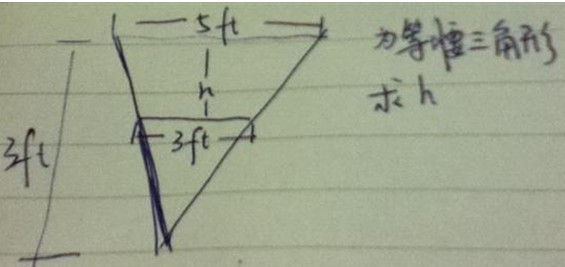 5ft
为等腰三角形
h
求h
3ft
3ft